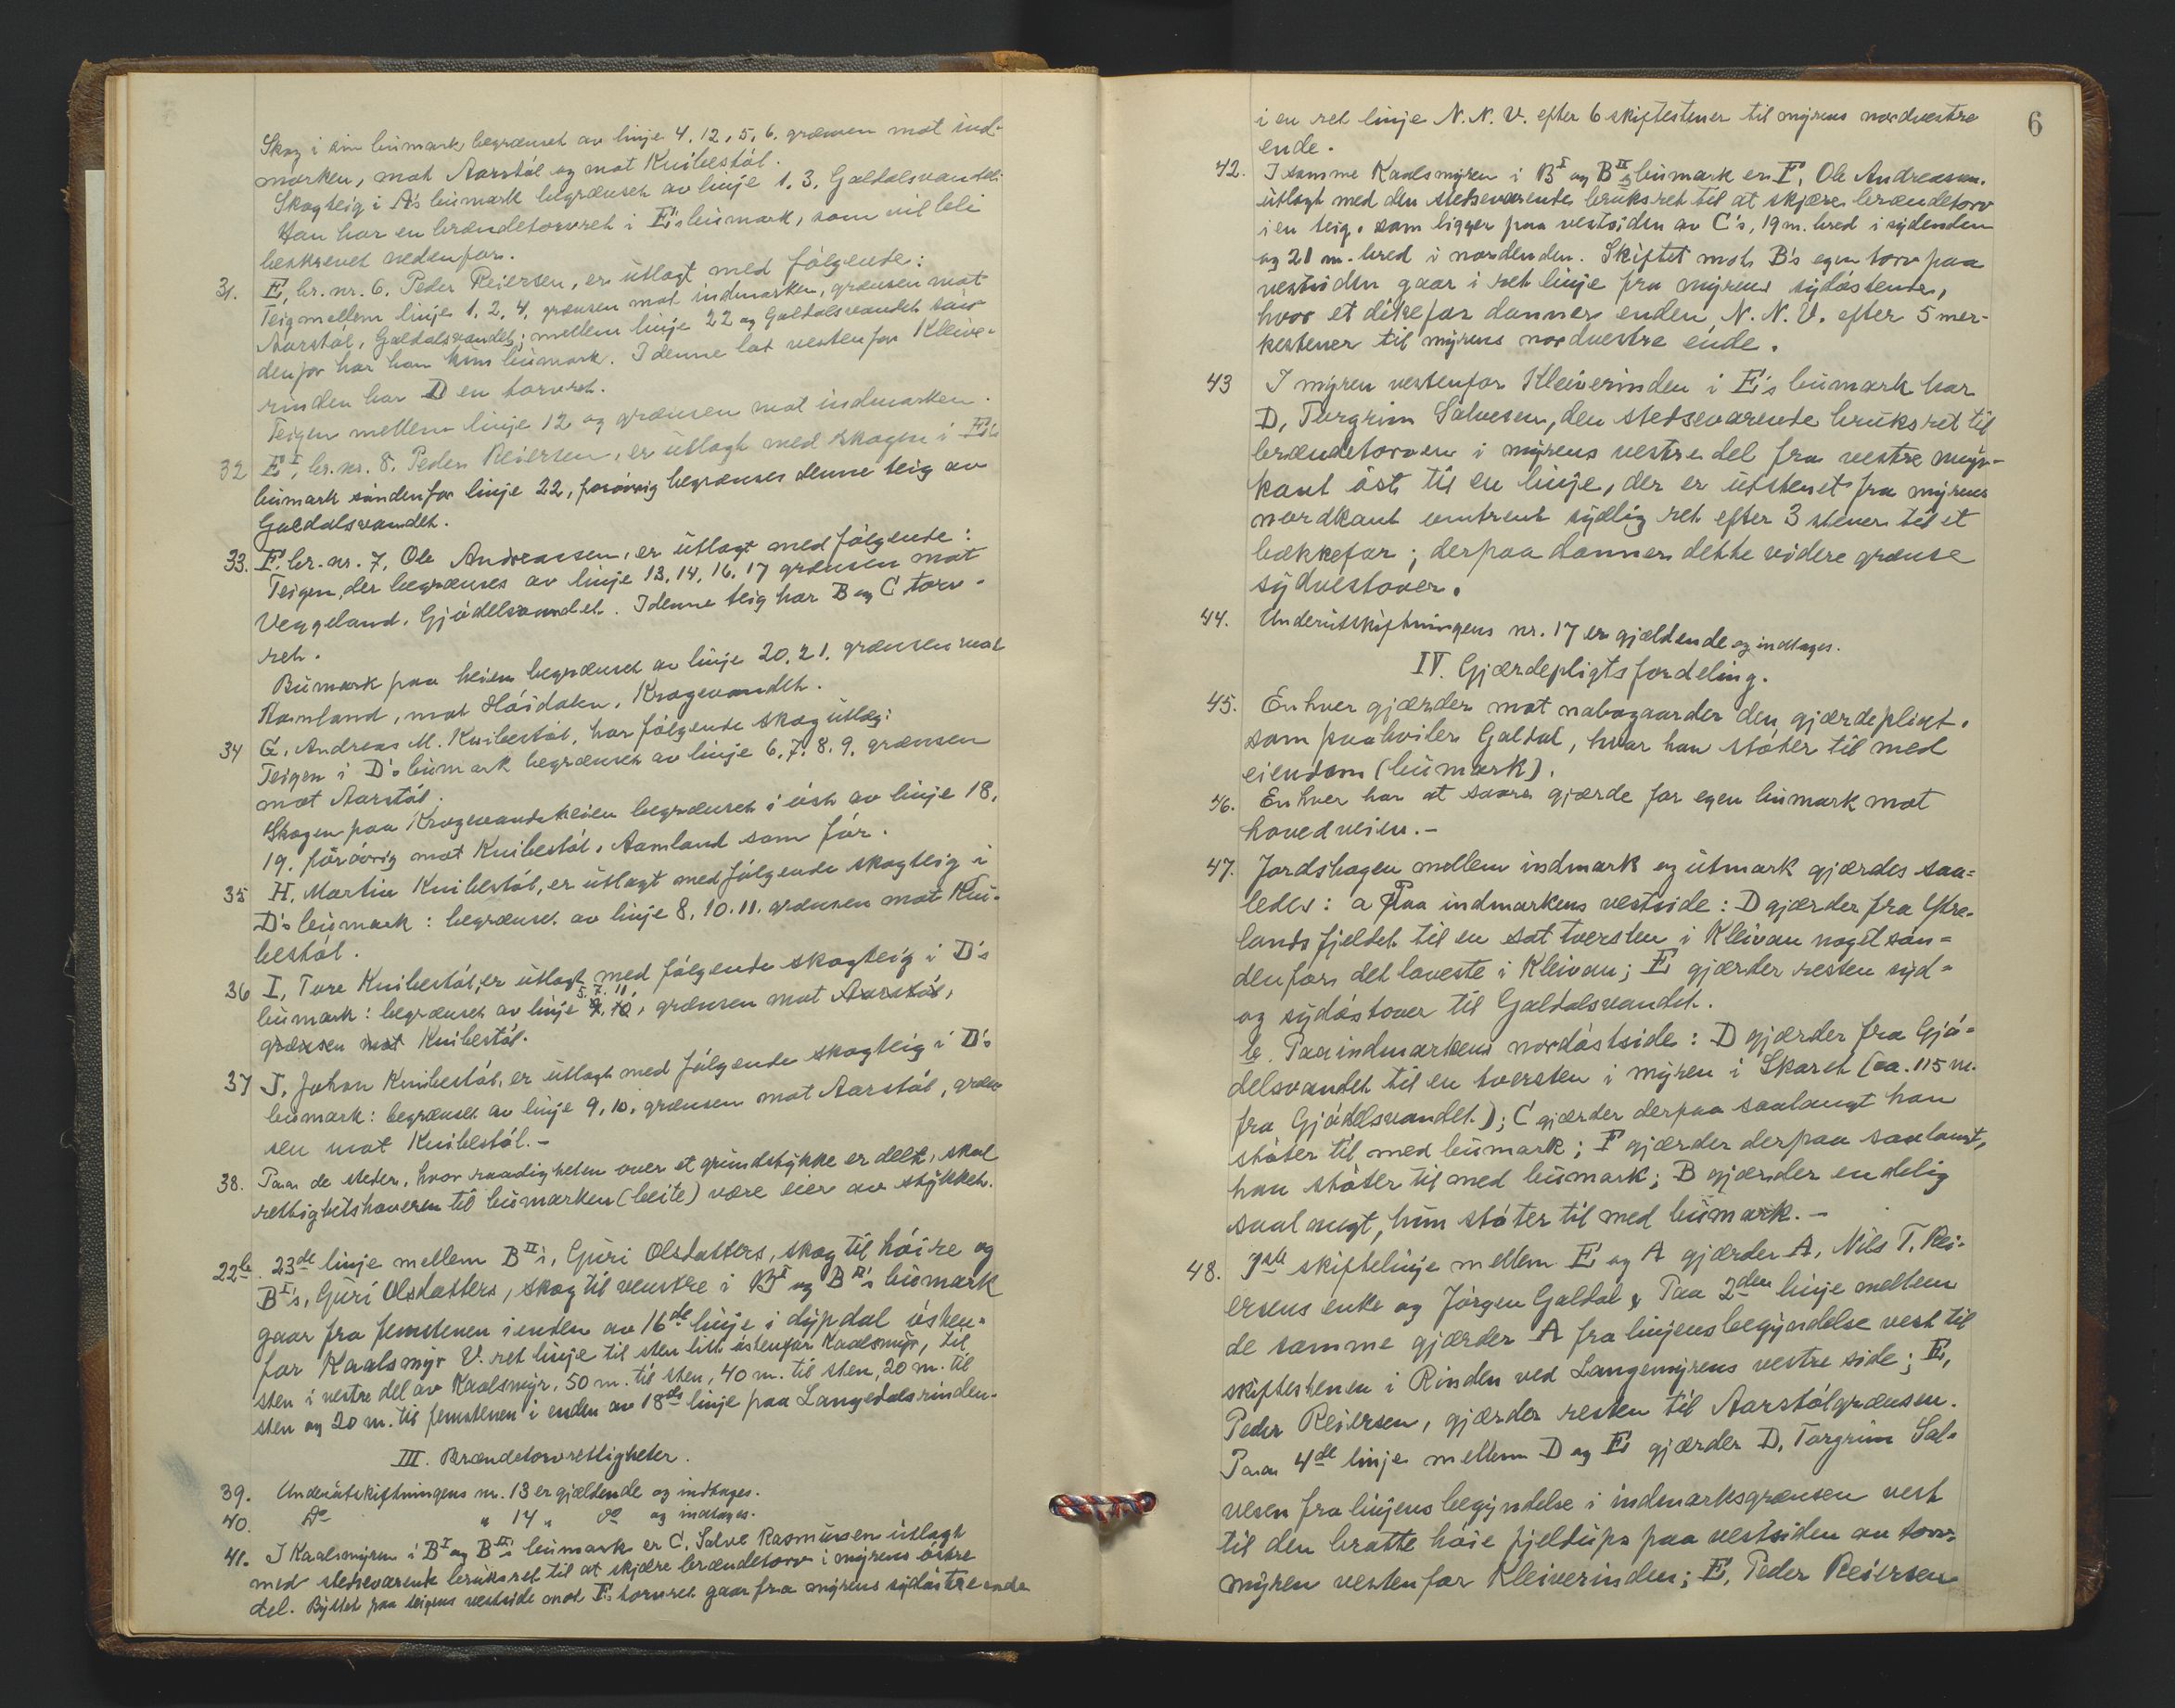 Skog i sin bumark begrænset av linje 4, 12, 5, 6, grænsen mot ind-
marken, mot Aarstøl og mot Knibestøl.
Skogteig i A's bumark begrænset av linje 1, 3, Galdalsvandet.
Han har en brændetorvret i E's bumark, som vil bli
beskrevet nedenfor.
31. E, br. nr. 6. Peder Reiersen, er utlagt med følgende:
Teig mellem linje 1, 2, 4, grænsen mot indmarken, grænsen mot
Aarstøl, Galdalsvandet; mellem linje 22 og Galdalsvandet søn-
denfor har han kun bumark. I denne lat vestenfor Kleive-
rinden har D en torvret.
Teigen mellem linje 12 og grænsen mot indmarken.
32 E I, br. nr. 8. Peder Reiersen, er utlagt med skogen i E's
bumark søndenfor linje 22, forøvrig begrænses denne teig av
Galdalsvandet.
33. F. br. nr. 7, Ole Andreassen, er utlagt med følgende:
Teigen, der begrænses av linje 13, 14, 16, 17 grænsen mot
Veggeland, Gjødelsvandet. I denne teig har B og C torv-
ret.
Bumark paa heien begrænset av linje 20, 21, grænsen mot
Ramland, mot Høidalen, Kragevandet.
34 G. Andreas M. Knibestøl, har følgende skog utlæg:
Teigen i D's bumark begrænset av linje 6, 7, 8, 9, grænsen
mot Aarstøl.
Skogen paa Kragevandsheien begrænset i øst av linje 18,
19, forøvrig mot Knibestøl, Aamland som før.
35 H. Martin Knibestøl, er utlagt med følgende skogteig i
D's bumark: begrænset av linje 8, 10. 11. grænsen mot Kni-
bestøl.
36 I, Tore Knibestøl, er utlagt med følgende skogteig i D's
5. 7. 11,
bumark: begrænset av linje 9, 10, grænsen mot Aarstøl,
grænsen mot Knibestøl.
37 J, Johan Knibestøl, er utlagt med følgende skogteig i D's
bumark: begrænset av linje 9, 10, grænsen mot Aarstøl, græn-
sen mot Knibestøl. -
38. Paa de steder, hvor raadigheten over et grundstykke er delt, skal
rettighetshaveren til bumarken (beite) være eier av stykket.
22b. 23de linje mellem B II's, Guri Olsdatters, skog til høire og
B I's, Guri Olsdatters, skog til venstre i B I og B II's bumark
gaar fra femstenen i enden av 16de linje i dypdal østen-
for Kaalsmyr V. ret linje til sten litt østenfor Kaalsmyr, til
sten i vestre del av Kaalsmyr, 50 m. til sten, 40 m. til sten, 20 m. til
sten og 20 m. til femstenen i enden av 18de linje paa Langedalsrinden.
III. Brændetorvrettigheter.
39. Underutskiftningens nr. 13 er gjældende og indtages.
40. Do " 14 " do og indtages.
41. I Kaalsmyren i B I og B II's bumark er C, Salve Rasmussen utlagt
med stedsevarende bruksret til at skjære brændetorv i myrens østre
del. Byttet paa teigens vestside mot F's torvret gaar fra myrens sydøstre ende
6
i en ret linje N. N. V. efter 6 skiftestener til myrens nordvestre
ende.
42. I samme Kaalsmyren i B I og B II's bumark er F, Ole Andreassen,
utlagt med den stedsevarende bruksret til at skjære brændetorv
i en teig, som ligger paa vestsiden av C's, 19 m. bred i sydenden
og 21 m. bred i nordenden. Skiftet mot B's egen torv paa
vestsiden gaar i ret linje fra myrens sydøstende,
hvor et dikefar danner enden, N. N. V. efter 5 mer-
kestener til myrens nordvestre ende.
43 I myren vestenfor Kleiverinden i E's bumark har
D, Torgrim Salvesen, den stedsevarende bruksret til
brændetorven i myrens vestre del fra vestre myr-
kant øst til en linje, der er utstenet fra myrens
nordkant omtrent sydlig ret efter 3 stener til et
bækkefar; derpaa danner dette videre grænse
sydvestover.
44. Underutskiftningens nr. 17 er gjældende og indtages.
IV. Gjærdepligtsfordeling.
45. Enhver gjærder mot nabogaarder den gjærdepligt,
som paahviler Galdal, hvor han støter til med
eiendom (bumark).
46. Enhver har at svare gjærde for egen bumark mot
hovedveien. -
47. Jordshagen mellem indmark og utmark gjærdes saa=
ledes: a Paa indmarkens vestside: D gjærder fra Ytre-
landsfjeldet til en sat tversten i Kleivan noget søn=
denfor det laveste i Kleivan; E gjærder resten syd=
og sydøstover til Galdalsvandet.
b. Paa indmarkens nordøstside: D gjærder fra Gjø=
delsvandet til en tversten i myren i Skaret (ca. 115 m.
fra Gjødelsvandet); C gjærder derpaa saalangt han
støter til med bumark; F gjærder derpaa saalangt,
han støter til med bumark; B gjærder endelig
saalangt, hun støter til med bumark. -
48. 1ste skiftelinje mellem E og A gjærder A, Nils T. Rei-
ersens enke og Jørgen Galdal. Paa 2den linje mellem
de samme gjærder A fra linjens begyndelse vest til
skiftestenen i Rinden ved Langemyrens vestre side; E,
Peder Reiersen, gjærder resten til Aarstølgrænsen.
Paa 4de linje mellem D og E gjærder D, Torgrim Sal-
vesen fra linjens begyndelse i indmarksgrænsen vest
til den bratte høie fjeldups paa vestsiden av torv-
myren vestenfor Kleiverinden; E, Peder Reiersen